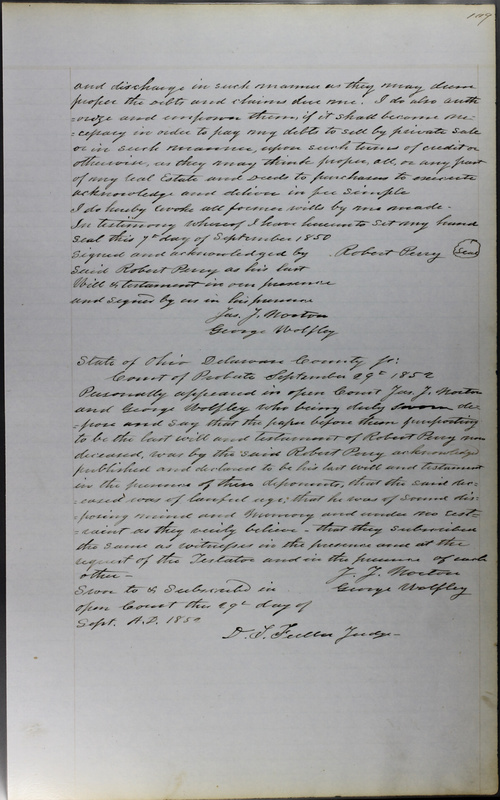 109
and discharge in such manner as they may deem
proper the debts and claims due me. I do also auth
=orize and empower them, if it shall become ne-
=cessary in order to pay my debts to sell by private sale
or in such manner, upon such terms of credit or
otherwise, as they may think proper, all, or any part
of my real Estate and Deeds to purchasers to execute
acknowledge and deliver in fee simple
I do hereby revoke all former wills by me made.
In testimony whereof I have hereunto set my hand
seal this 7th day of September 1850
Signed and acknowledged by Robert Perry Seal
Said Robert Perry as his last
Will & testament in our presence
and signed by us in his presence
Jas. J. Norton
George Wolfley
State of Ohio Delaware County ss:
Court of Probate September 29th 1852
Personally appeared in open Court Jas. J. Norton
and George Wolfley who being duly sworn de-
=pose and say that the paper before them purporting
to be the last will and testament of Robert Perry now
deceased, was by the said Robert Perry acknowledged
published and declared to be his last will and testament
in the presence of these deponents, that the said dec-
=eased was of lawful age; that he was of sound dis-
=posing mind and memory and under no rest-
=raint as they verily believe - that they subscribed
the same as witnesses in the presence and at the
request of the Testator and in the presence of each
other - J. J. Norton
Sworn to & Subscribed in George Wolfley
open Court this 29th day of
Sept. A.D. 1852
D. T. Fuller Judge-